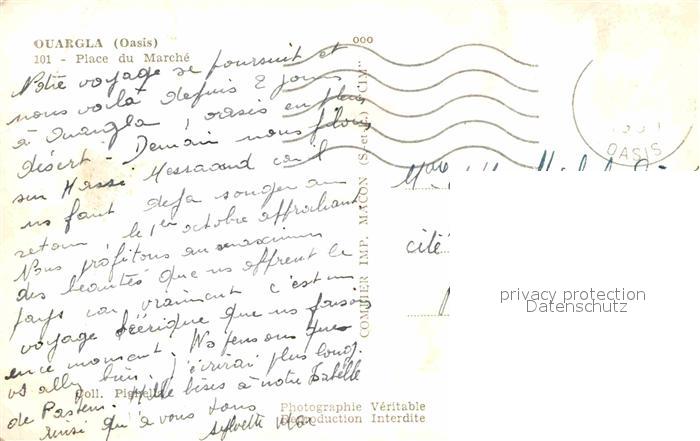 OUARGLA (Oasis)
101 - Place du Marché
000
Notre voyage se poursuit et
nous voilà depuis 2 jours
à Ouargla, oasis en plein
désert - Demain nous filons
sur Hassi Messaoud car il
ns faut déjà songer au
retour, le 1er octobre approchant
Nous profitons au maximum
des beautés que ns offrent le
pays car vraiment c'est un
voyage féérique que ns faisons
en ce moment. Ns pensons que
vs allez bien. J'écrirai plus long.
de Pasteur. Mille bises à notre Isabelle
ainsi qu'à vous tous
Sylvette
Coll.
Photographie Véritable
Reproduction Interdite
COMBIER IMP. MACON (S.-et-L.) "CIM"
OASIS
Mme
cité
privacy protection
Datenschutz